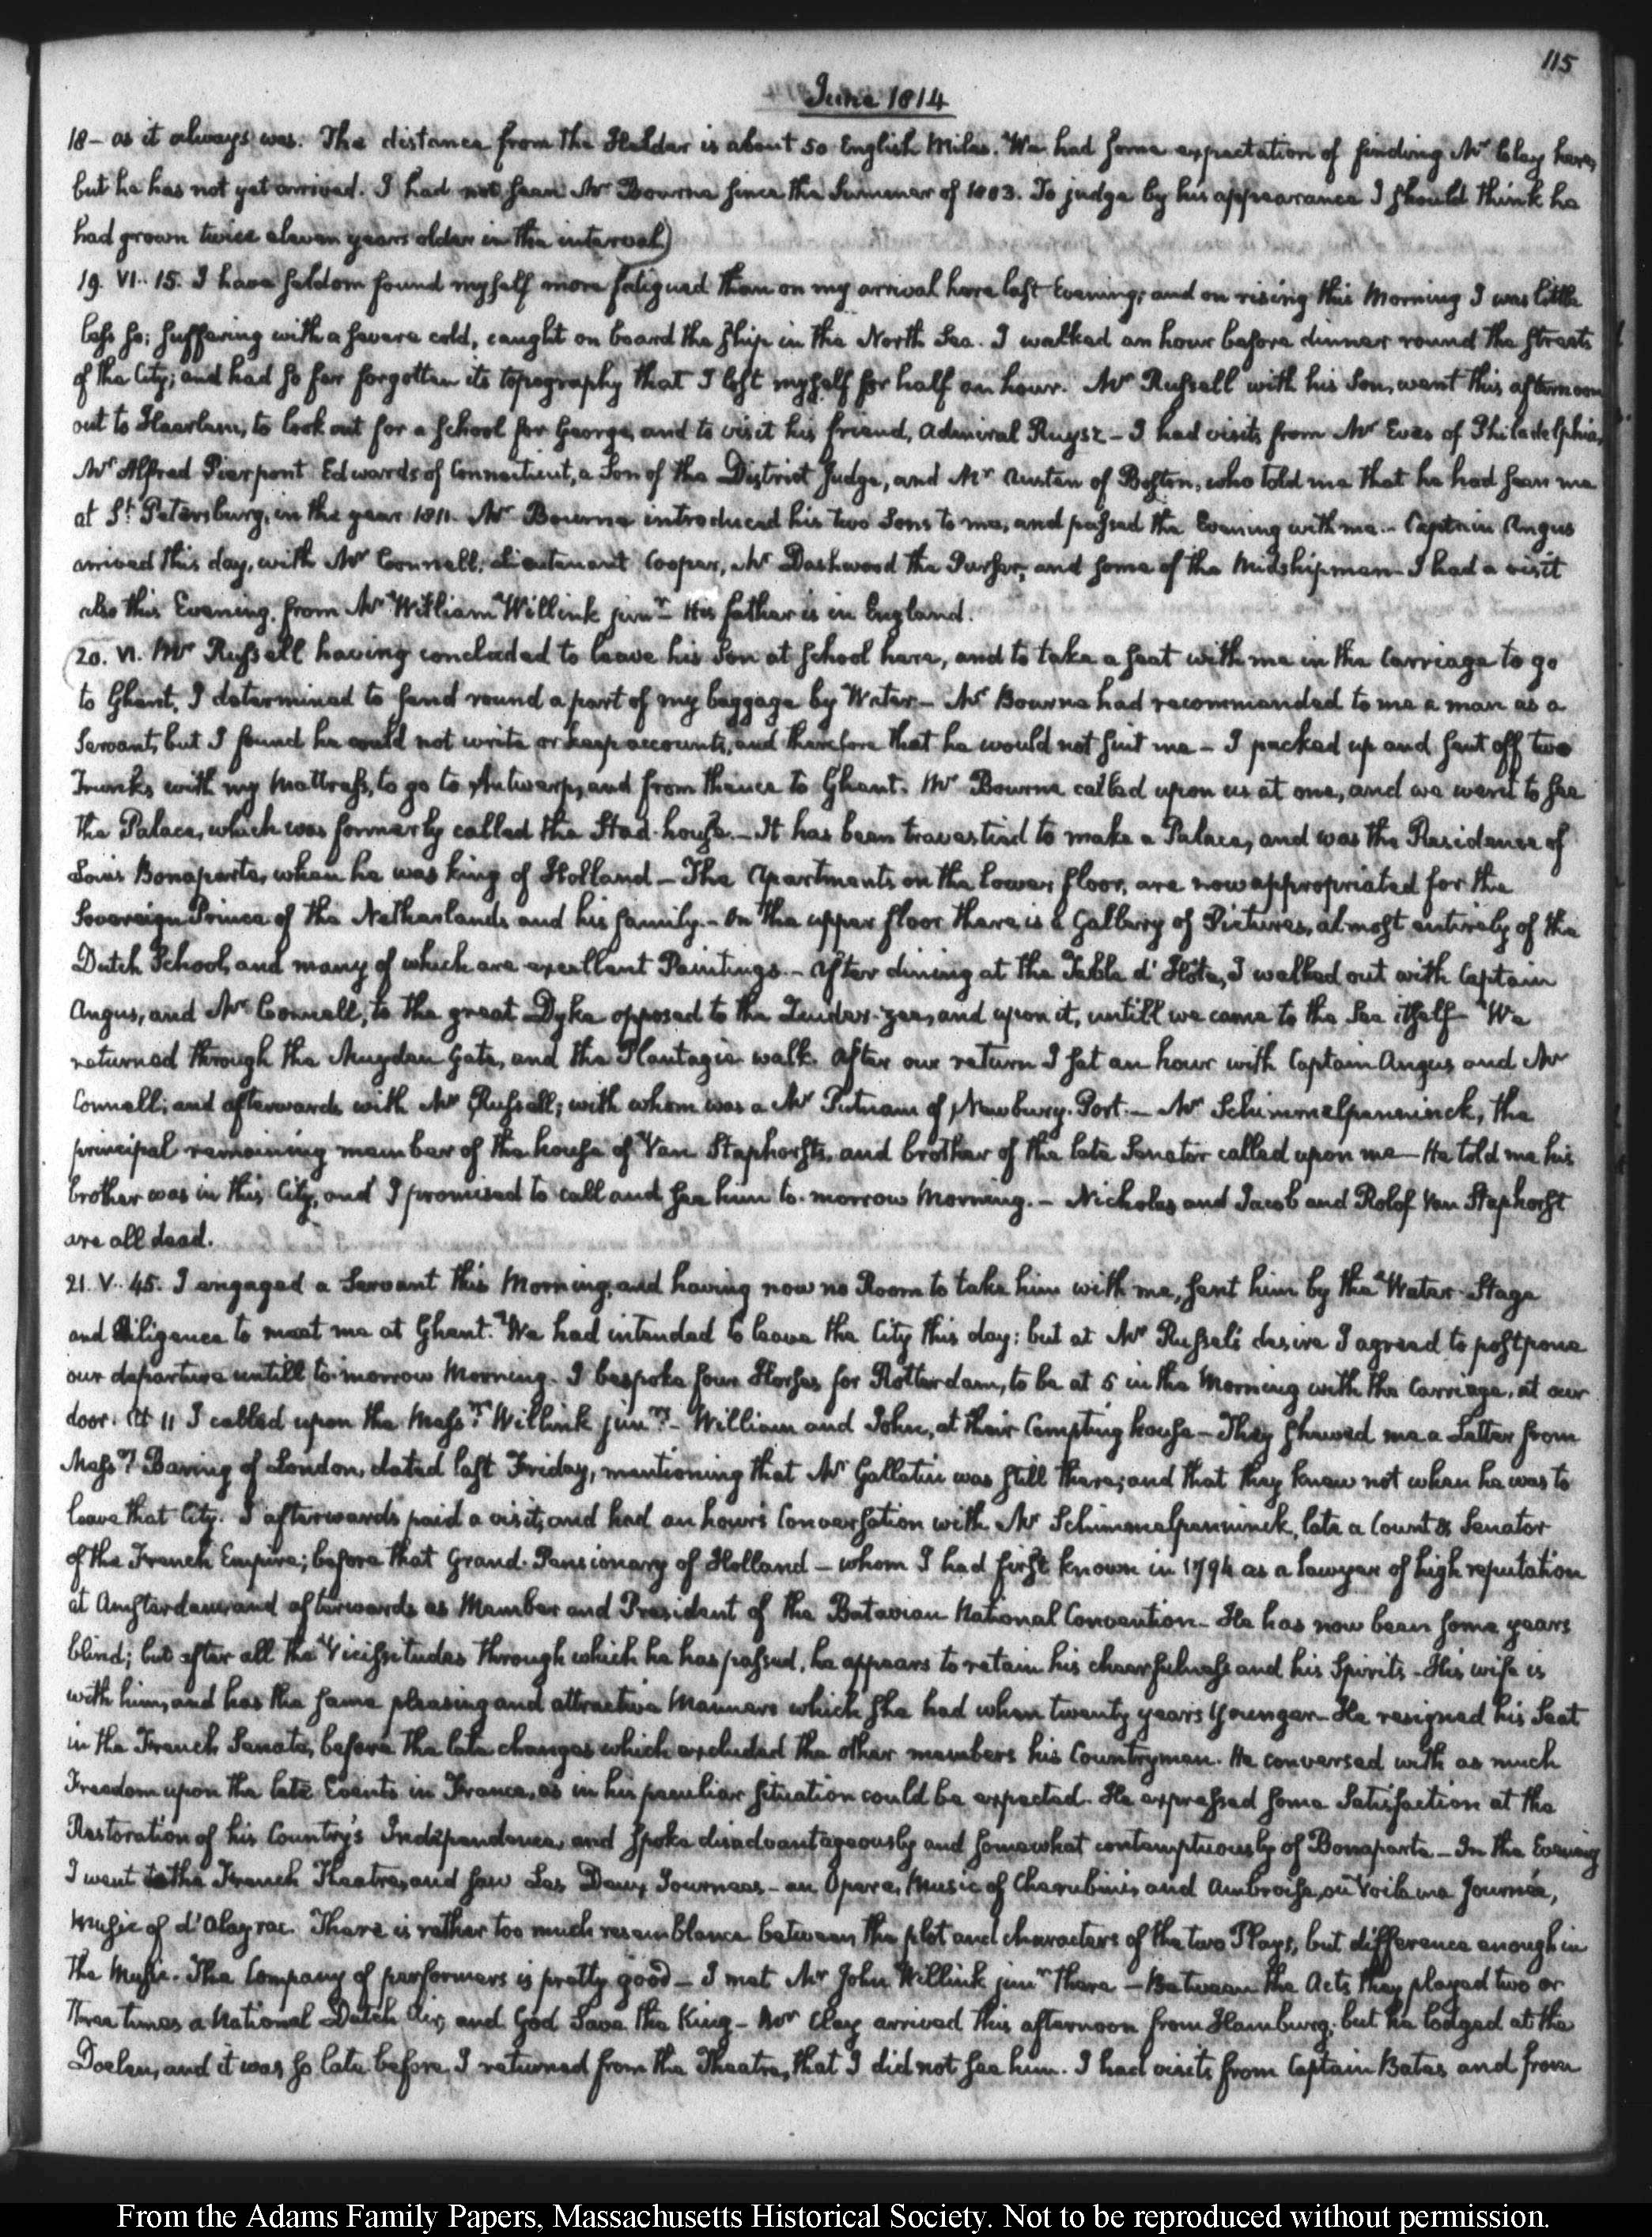 115
June 1814
18 - as it always was. The distance from the Helder is about 50 English Miles. We had some expectation of finding Mr Clay here,
but he has not yet arrived. I had not seen Mr Bourne since the Summer of 1803. To judge by his appearance I should think he
had grown twice eleven years older in the interval)
19. VI.. 15. I have seldom found myself more fatigued than on my arrival here last Evening; and on rising this Morning I was little
less so; suffering with a severe cold, caught on board the ship in the North Sea. I walked an hour before dinner round the streets
of the City; and had so far forgotten its topography that I lost myself for half an hour. Mr Russell with his Son, went this afternoon
out to Haarlem, to look out for a school for George, and to visit his friend, Admiral Ruysz - I had visits from Mr Eves of Philadelphia,
Mr Alfred Pierpont Edwards of Connecticut, a Son of the District Judge, and Mr Austen of Boston, who told me that he had seen me
at St Petersburg, in the year 1811. Mr Bourne introduced his two Sons to me, and passed the Evening with me.- Captain Angus
arrived this day, with Mr Connell, Lieutenant Cooper, Mr Dashwood the Purser, and some of the Midshipmen. I had a visit
also this Evening from Mr William Willink junr - His father is in England.
20. VI. Mr Russell having concluded to leave his Son at school here, and to take a seat with me in the Carriage to go
to Ghent, I determined to send round a part of my baggage by Water - Mr Bourne had recommended to me a man as a
Servant, but I found he could not write or keep accounts, and therefore that he would not suit me - I packed up and sent off two
Trunks with my Mattrass, to go to Antwerp, and from thence to Ghent. Mr Bourne called upon us at one, and we went to see
the Palace, which was formerly called the Stad-house. - It has been travestied to make a Palace, and was the Residence of
Louis Bonaparte, when he was king of Holland - The Apartments on the lower floor, are now appropriated for the
Sovereign Prince of the Netherlands and his family - On the upper floor there is a Gallery of Pictures, almost entirely of the
Dutch School, and many of which are excellent Paintings. - After dining at the Table d'Hôte, I walked out with Captain
Angus, and Mr Connell, to the great Dyke opposed to the Zuider-zee, and upon it, untill we came to the Sea itself - We
returned through the Muyden Gate, and the Plantagie walk. After our return I sat an hour with Captain Angus and Mr
Connell; and afterwards with Mr Russell; with whom was a Mr Putnam of Newbury-Port. - Mr Schimmelpenninck, the
principal remaining member of the house of Van Staphorsts, and brother of the late Senator called upon me - He told me his
brother was in this City, and I promised to call and see him to-morrow Morning. - Nicholas and Jacob and Rolof Van Staphorst
are all dead.
21. V.. 45. I engaged a Servant this Morning, and having now no Room to take him with me, sent him by the Water-Stage
and Diligence to meet me at Ghent. We had intended to leave the City this day; but at Mr Russel's desire I agreed to postpone
our departure untill to-morrow Morning. I bespoke four Horses for Rotterdam, to be at 5 in the Morning with the Carriage, at our
door. At 11 I called upon the Messrs Willink junrs - William and John, at their Compting house - They shewed me a Letter from
Messrs Baring of London, dated last Friday, mentioning that Mr Gallatin was still there, and that they knew not when he was to
leave that City. I afterwards paid a visit, and had an hour's Conversation with Mr Schimmelpenninck, late a Count & Senator
of the French Empire; before that Grand-Pensionary of Holland - whom I had first known in 1794 as a lawyer of high reputation
at Amsterdam, and afterwards as Member and President of the Batavian National Convention. He has now been some years
blind; but after all the Vicissitudes through which he has passed, he appears to retain his cheerfulness and his Spirits - His wife is
with him, and has the same pleasing and attractive Manners which she had when twenty years younger - He resigned his Seat
in the French Senate, before the late changes which excluded the other members his Countrymen. He conversed with as much
Freedom upon the late Events in France, as in his peculiar situation could be expected. He expressed some Satisfaction at the
Restoration of his Country's Independence, and spoke disadvantageously and somewhat contemptuously of Bonaparte - In the Evening
I went to the French Theatre, and saw Les Deux Journees - an Opera, Music of Cherubini, and Ambroise, ou Voila ma Journée,
Music of d'Alayrac. There is rather too much resemblance between the plot and characters of the two Plays, but difference enough in
the Music. The Company of performers is pretty good - I met Mr John Willink junr there - Between the Acts they played two or
three times a National Dutch Air, and God Save the King - Mr Clay arrived this afternoon from Hamburg; but he lodged at the
Doelen, and it was so late before I returned from the Theatre, that I did not see him. I had visits from Captain Bates and from
From the Adams Family Papers, Massachusetts Historical Society. Not to be reproduced without permission.